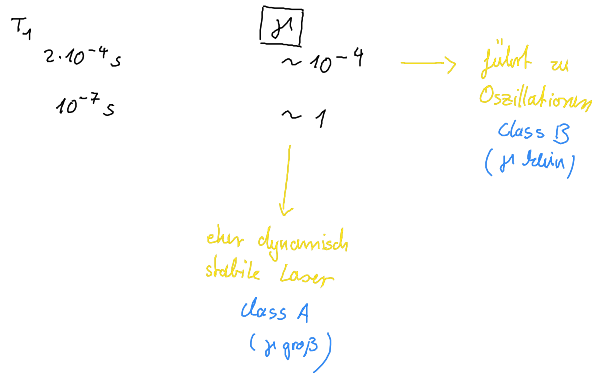 T₁
γ
2·10⁻⁴ s
~ 10⁻⁴
führt zu
Oszillationen
class B
(γ klein)
10⁻⁷ s
~ 1
eher dynamisch
stabile Laser
class A
(γ groß)